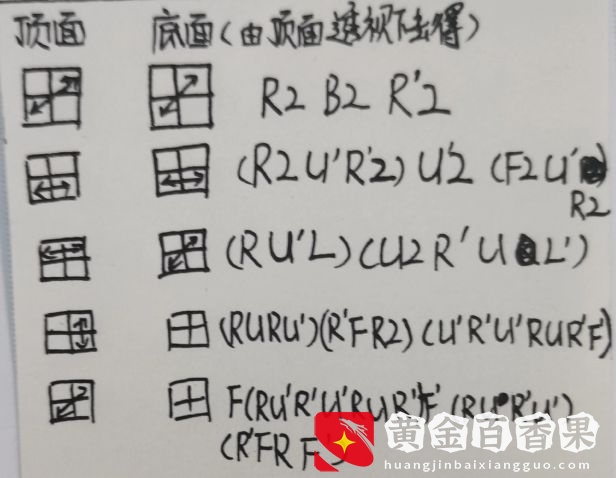 顶面 底面(由顶面透视下去得)
R2 B2 R'2
(R2U'R'2)U'2 (F2U'
R2
(RU'L)(U2R'UL')
(RURU')(R'FR2)(U'R'U'RUR'F)
F(RU'R'U'RUR')F'(RUR'U')
(R'FRF')
黄金百香果
huangjinbaixiangguo.com